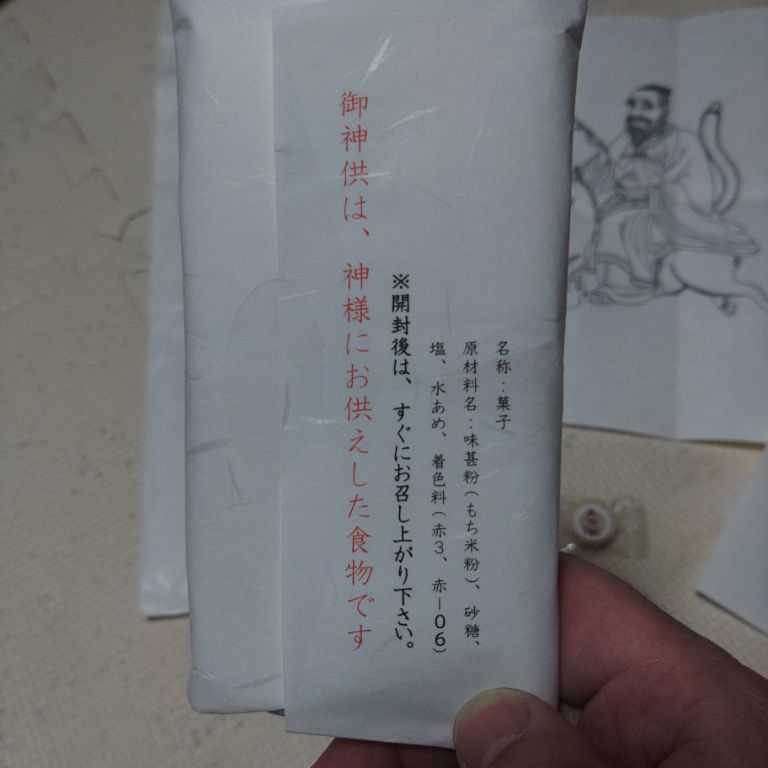 名称：菓子
原材料名：味甚粉（もち米粉）、砂糖、
塩、水あめ、着色料（赤３、赤－０６）
※開封後は、すぐにお召し上がり下さい。
御神供は、神様にお供えした食物です